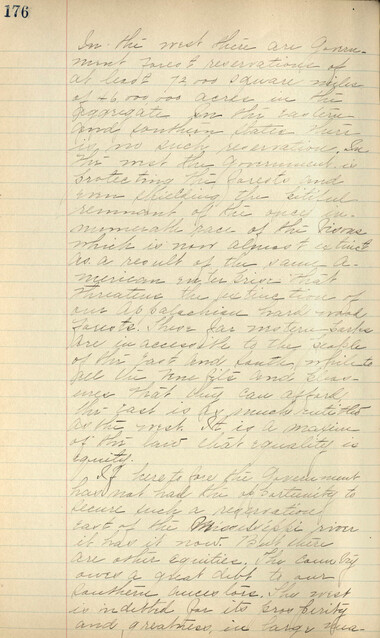 176
In the west there are Govern-
ment Forest reservations of
at least 72000 square miles
or 46.000.000 acres in the
aggregate. In the eastern
and southern states there
is no such reservation. In
the west the Government is
protecting the forests and
even shielding the pitiful
remnant of the once in-
numerable race of the Bisons
which is now almost extinct
as a result of the same A-
merican enterprise that
threatens the extinction of
our Appalachian hard-wood
forests. These far western Parks
are inaccessible to the people
of the East and South, while to
all the benefits and pleas-
ures that they can afford,
the East is as much entitled
as the west. It is a maxim
of the law that equality is
equity.
If heretofore the Government
has not had the opportunity to
secure such a reservation
east of the Mississippi river
it has it now. But there
are other equities. The Country
owes a great debt to our
southern ancestors. The west
is indebted for its prosperity
and greatness, in large mea-